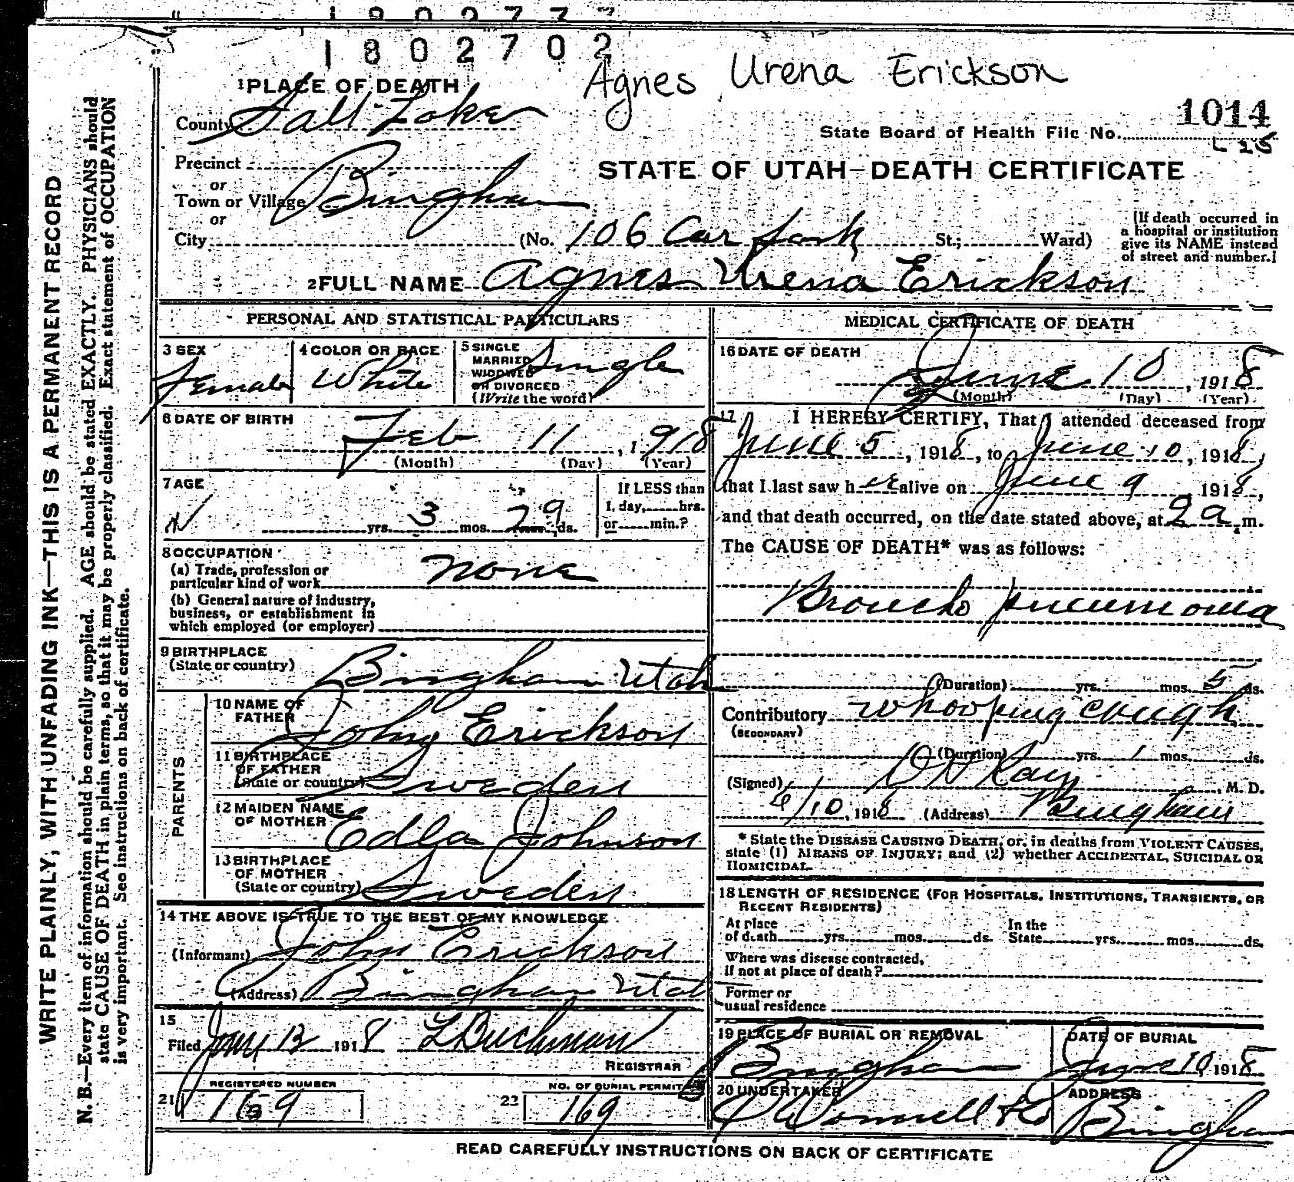 1802702
Agnes Urena Erickson
1PLACE OF DEATH
County Salt Lake
1014
State Board of Health File No.
L 25
Precinct
or
Town or Village Bingham
or
STATE OF UTAH—DEATH CERTIFICATE
City (No. 106 Carr Fork St.; Ward)
[If death occurred in
a hospital or institution
give its NAME instead
of street and number.]
2FULL NAME Agnes Urena Erickson
PERSONAL AND STATISTICAL PARTICULARS
3 SEX
Female
4 COLOR OR RACE
White
5 SINGLE
MARRIED
WIDOWED
OR DIVORCED
(Write the word)
Single
6 DATE OF BIRTH
Feb 11, 1918
(Month) (Day) (Year)
7 AGE
yrs. 3 mos. 29 ds.
If LESS than
1 day, hrs.
or min.?
8 OCCUPATION
(a) Trade, profession or
particular kind of work none
(b) General nature of industry,
business, or establishment in
which employed (or employer)
9 BIRTHPLACE
(State or country) Bingham Utah
PARENTS
10 NAME OF
FATHER John Erickson
11 BIRTHPLACE
OF FATHER
(State or country) Sweden
12 MAIDEN NAME
OF MOTHER Edla Johnson
13 BIRTHPLACE
OF MOTHER
(State or country) Sweden
14 THE ABOVE IS TRUE TO THE BEST OF MY KNOWLEDGE
(Informant) John Erickson
(Address) Bingham Utah
15
Filed June 12 1918 Buchman
REGISTRAR
REGISTERED NUMBER
21
NO. OF BURIAL PERMIT
23 169
MEDICAL CERTIFICATE OF DEATH
16 DATE OF DEATH
June 10, 1918
(Month) (Day) (Year)
17 I HEREBY CERTIFY, That I attended deceased from
June 5, 1918, to June 10, 1918,
that I last saw her alive on June 9 1918,
and that death occurred, on the date stated above, at 2 a.m.
The CAUSE OF DEATH* was as follows:
Broncho pneumonia
(Duration) yrs. mos. 5 ds.
Contributory whooping cough
(SECONDARY)
(Duration) yrs. 1 mos. ds.
(Signed) Ray M. D.
6/10, 1918 (Address) Bingham
*State the DISEASE CAUSING DEATH, or, in deaths from VIOLENT CAUSES,
state (1) MEANS OF INJURY; and (2) whether ACCIDENTAL, SUICIDAL OR
HOMICIDAL.
18 LENGTH OF RESIDENCE (FOR HOSPITALS, INSTITUTIONS, TRANSIENTS, OR
RECENT RESIDENTS)
At place
of death yrs. mos. ds.
In the
State yrs. mos. ds.
Where was disease contracted,
if not at place of death?
Former or
usual residence
19 PLACE OF BURIAL OR REMOVAL
Bingham
DATE OF BURIAL
June 10, 1918
20 UNDERTAKER
ADDRESS
Bingham
READ CAREFULLY INSTRUCTIONS ON BACK OF CERTIFICATE
WRITE PLAINLY, WITH UNFADING INK—THIS IS A PERMANENT RECORD
N. B.—Every item of information should be carefully supplied. AGE should be stated EXACTLY. PHYSICIANS should
state CAUSE OF DEATH in plain terms, so that it may be properly classified. Exact statement of OCCUPATION
is very important. See instructions on back of certificate.